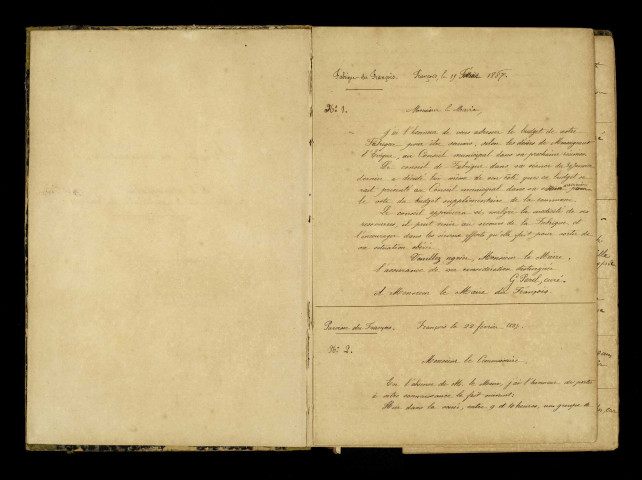 Fabrique du François. François, le 19 Février 1887.
N° 1.
Monsieur le Maire,
J'ai l'honneur de vous adresser le budget de notre
Fabrique, pour être soumis, selon les désirs de Monseigneur
l'Evêque, au Conseil municipal dans sa prochaine réunion.
Le conseil de Fabrique dans sa séance du
dernier a décidé lui même de son côté que ce budget se-
rait présenté au Conseil municipal dans sa
le vote du budget supplémentaire de la commune.
Le conseil appréciera si, malgré la modicité de ses
ressources, il peut venir au secours de la Fabrique, et
l'encourager dans les efforts qu'elle fait pour sortir de
sa situation
Veuillez agréer, Monsieur le Maire,
l'assurance de ma considération distinguée
G. curé.
A Monsieur le Maire du François.
Paroisse du François. François le 22 février 1887.
N° 2.
Monsieur le Commissaire,
En l'absence de M. le Maire, j'ai l'honneur de porter
à votre connaissance le fait suivant:
Hier dans la soirée, entre 9 et 10 heures, un groupe de